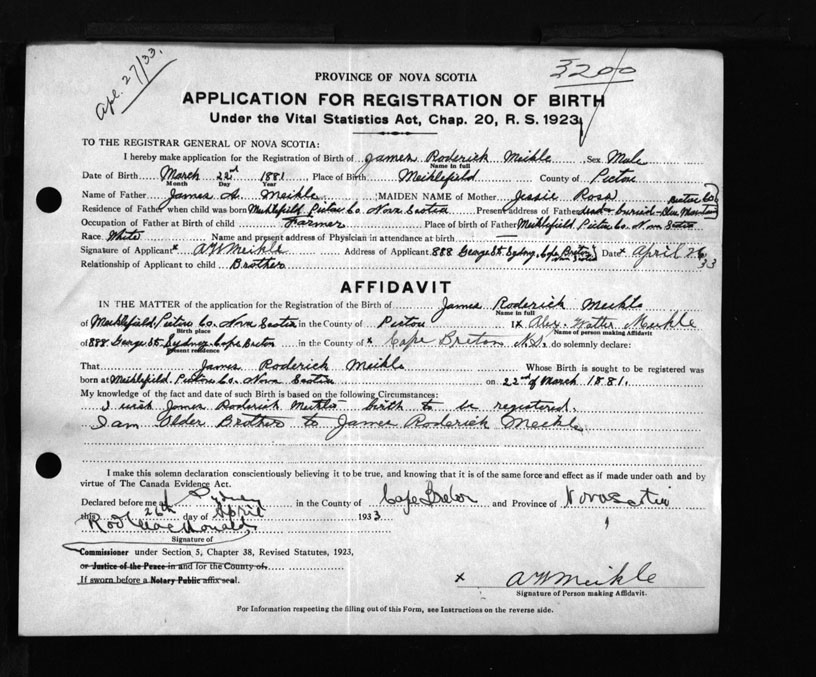 Apl. 27/33.
3200
PROVINCE OF NOVA SCOTIA
APPLICATION FOR REGISTRATION OF BIRTH
Under the Vital Statistics Act, Chap. 20, R. S. 1923
TO THE REGISTRAR GENERAL OF NOVA SCOTIA:
I hereby make application for the Registration of Birth of James Roderick Meikle Sex Male
Name in full
Date of Birth March 22nd 1881 Place of Birth Meiklefield County of Pictou
Month Day Year
Name of Father James A. Meikle MAIDEN NAME of Mother Jessie Ross
Pictou Co
Residence of Father when child was born Meiklefield Pictou Co. Nova Scotia Present address of Father dead - buried - Blue Mountain
Occupation of Father at Birth of child Farmer Place of birth of Father Meiklefield, Pictou Co. Nova Scotia
Race White Name and present address of Physician in attendance at birth —
Signature of Applicant x A W Meikle Address of Applicant 888 George St. Sydney, Cape Breton Nova Scotia Date x April 26 33
Relationship of Applicant to child Brother
AFFIDAVIT
IN THE MATTER of the application for the Registration of the Birth of James Roderick Meikle
Name in full
of Meiklefield, Pictou Co. Nova Scotia in the County of Pictou I x Alex. Walter Meikle
Birth place Name of person making Affidavit
of 888 George St. Sydney Cape Breton in the County of x Cape Breton N.S. do solemnly declare:
Present residence
That James Roderick Meikle Whose Birth is sought to be registered was
born at Meiklefield, Pictou Co. Nova Scotia on 22nd of March 1881.
My knowledge of the fact and date of such Birth is based on the following Circumstances:
I wish James Roderick Meikle's birth to be registered.
I am Elder Brother to James Roderick Meikle
I make this solemn declaration conscientiously believing it to be true, and knowing that it is of the same force and effect as if made under oath and by
virtue of The Canada Evidence Act.
Declared before me at Sydney in the County of Cape Breton and Province of Nova Scotia
this 26th day of April 1933
Rod MacDonald
Signature of
Commissioner under Section 5, Chapter 38, Revised Statutes, 1923,
or Justice of the Peace in and for the County of
If sworn before a Notary Public affix seal.
x A W Meikle
Signature of Person making Affidavit.
For Information respecting the filling out of this Form, see Instructions on the reverse side.